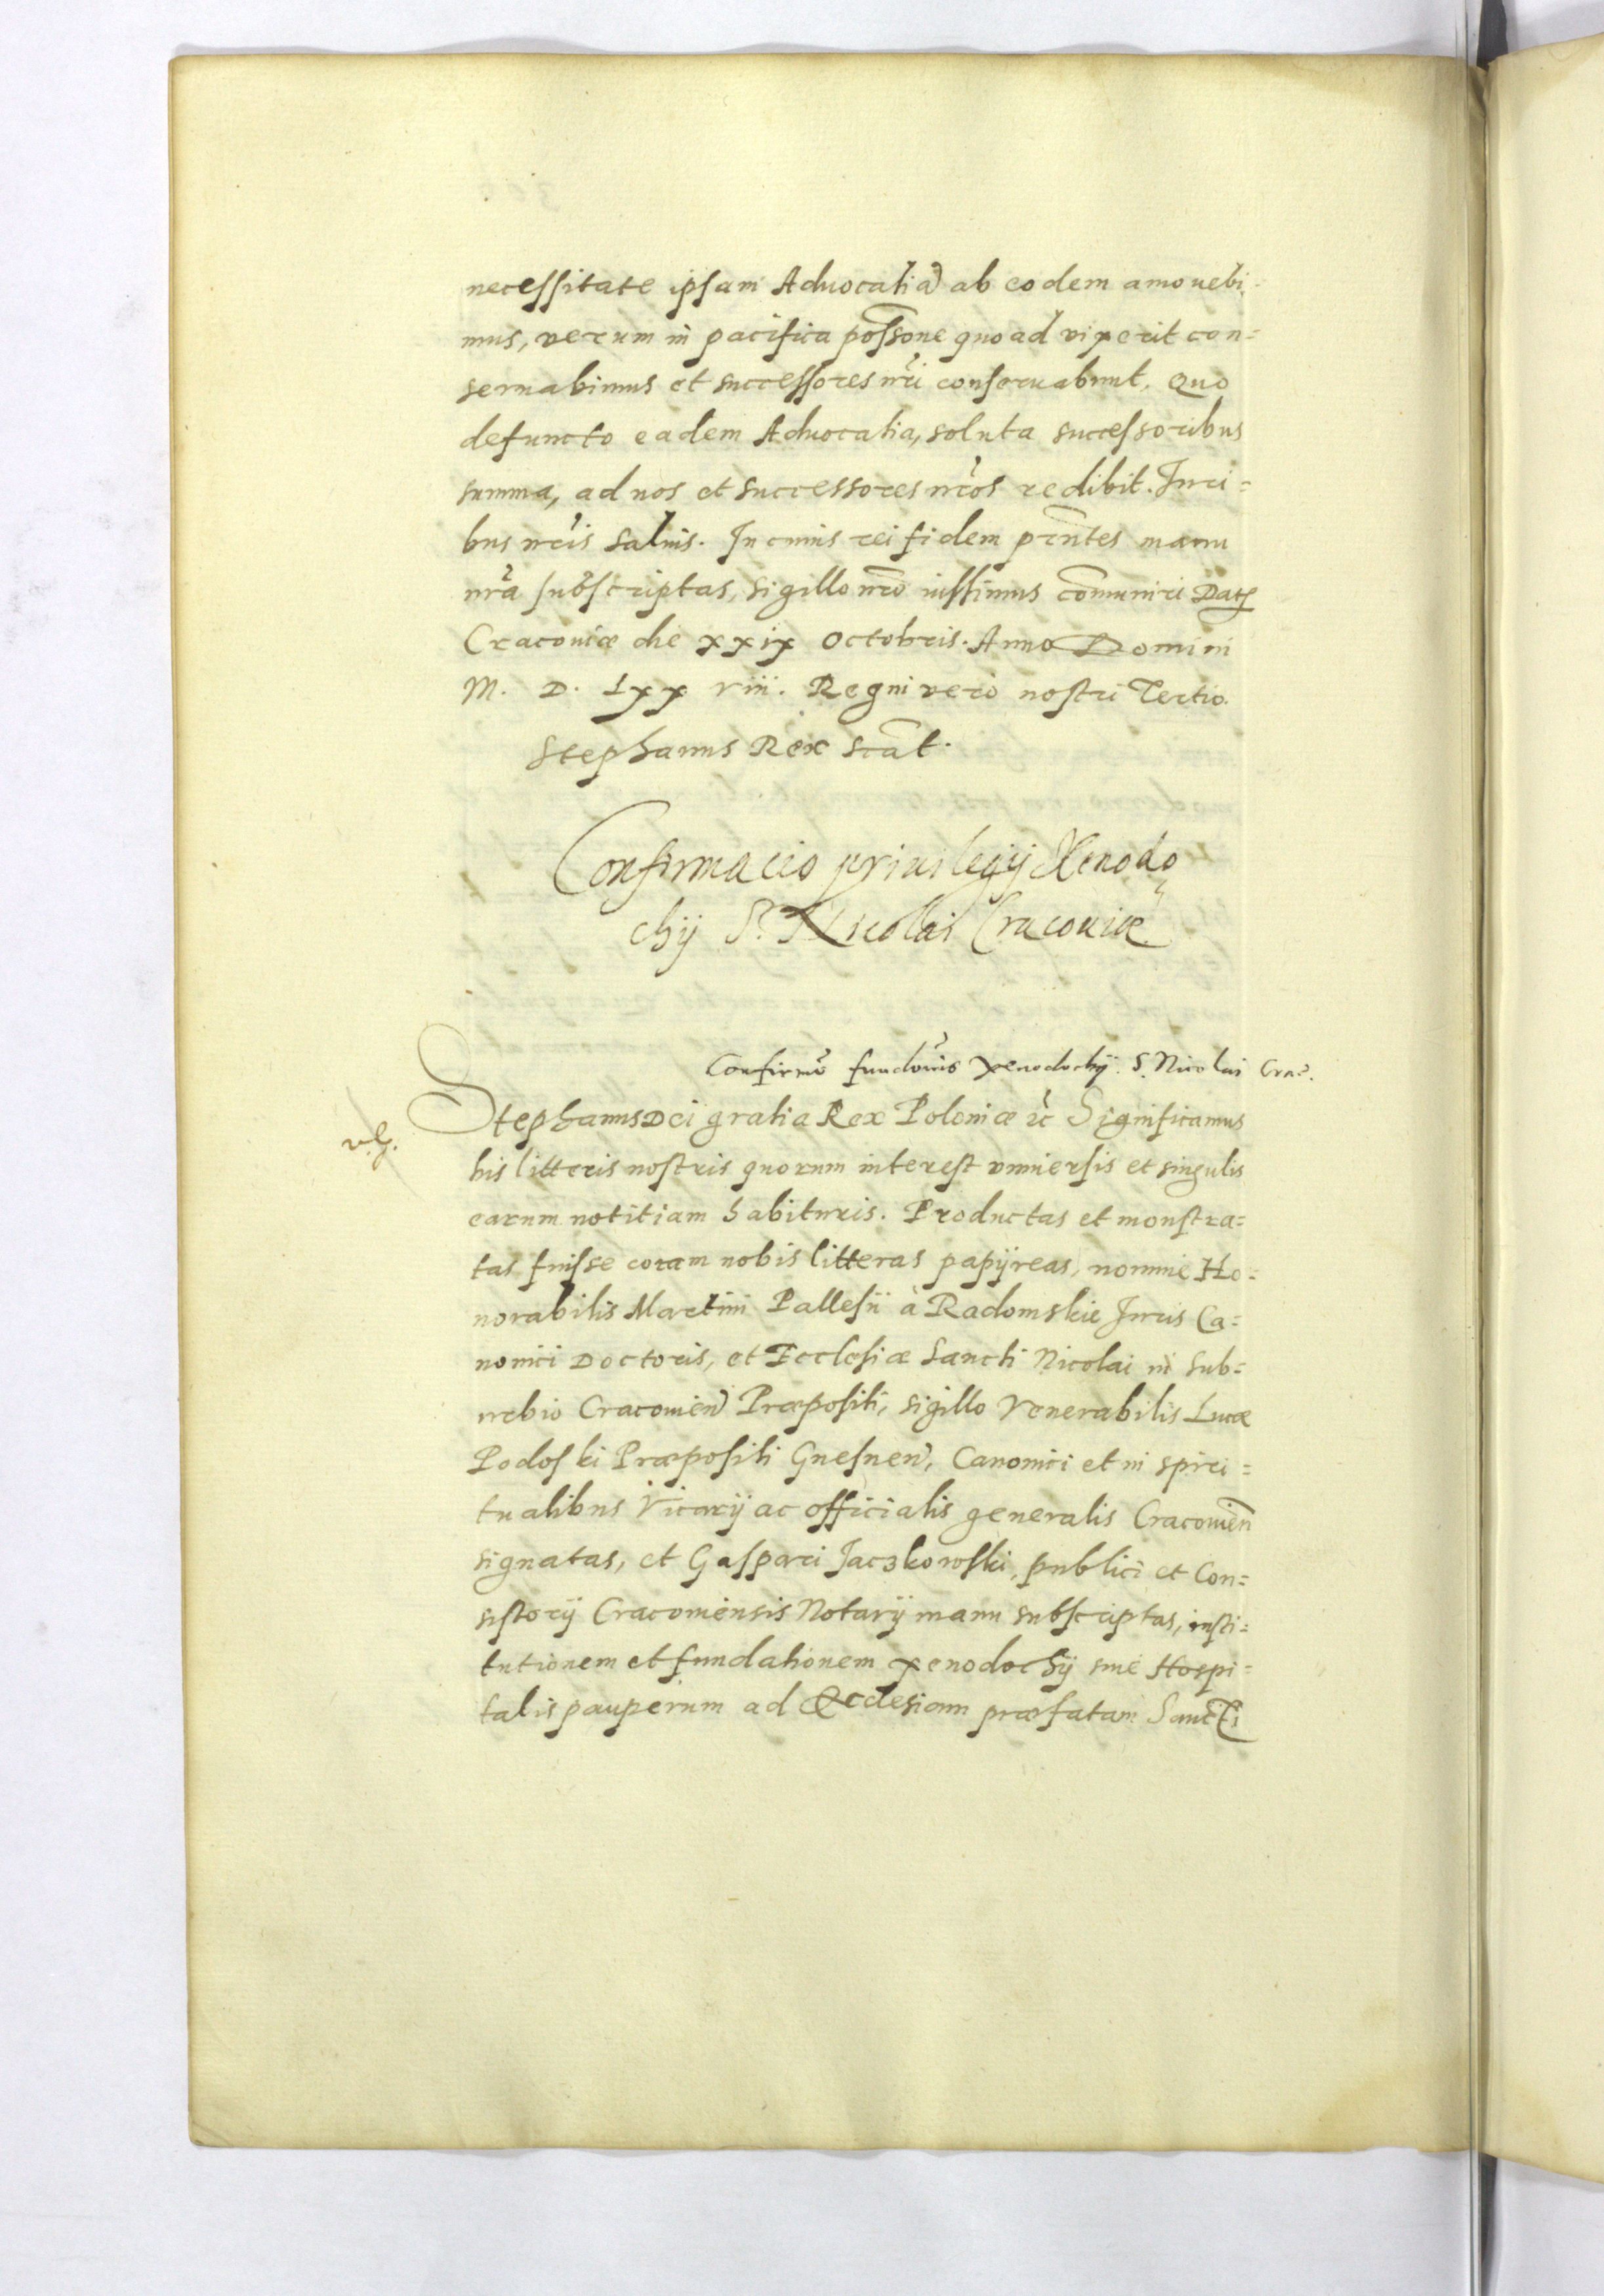 necessitate ipsam Advocatiã ab eodem amovebi-
mus, verum in pacifica possone quoad vixerit con=
servabimus et successores nri conservabunt. Quo
defuncto eadem Advocatia, soluta successoribus
summa, ad nos et successores nros redibit. Juri=
bus nris salvis. In cuius rei fidem prntes manu
nra subscriptas, sigillo nro iussimus comuniri Dat
Cracoviæ die xxix Octobris. Anno Domini
M. D. Lxx viii. Regni vero nostri Tertio.
Stephanus Rex scat.
Confirmacio privilegij Xenodo
chij S. Nicolai Cracoviæ
Confirmo fundonis xenodochij S. Nicolai Crac.
Stephanus Dei gratia Rex Poloniæ &c Significamus
his litteris nostris quorum interest universis et singulis
earum notitiam habituris. Productas et monstra=
tas fuisse coram nobis litteras papijreas, nomine Ho=
norabilis Martini Pallesii à Radomskie Juris Ca=
nonici Doctoris, et Ecclesiæ Sancti Nicolai in sub=
urbio Cracovien Præpositi, sigillo Venerabilis Lucæ
Podoski Præpositi Gnesnen, Canonici et in spiri=
tualibus Vicarij ac officialis generalis Cracovien
signatas, et Gaspari Jaczkowski, publici et Con=
sistorij Cracoviensis Notarij manu subscriptas, insti=
tutionem et fundationem xenodochij sive Hospi=
talis pauperum ad Ecclesiam præfatam Sancti